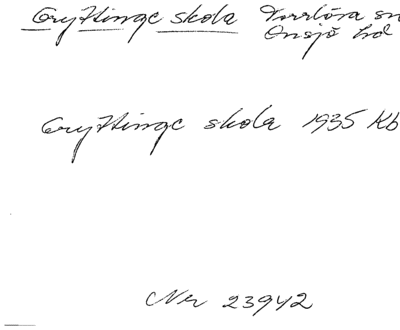 Gryttinge skola Torrlösa sn
Onsjö hd
Gryttinge skola 1935 Kb
Nr 23942